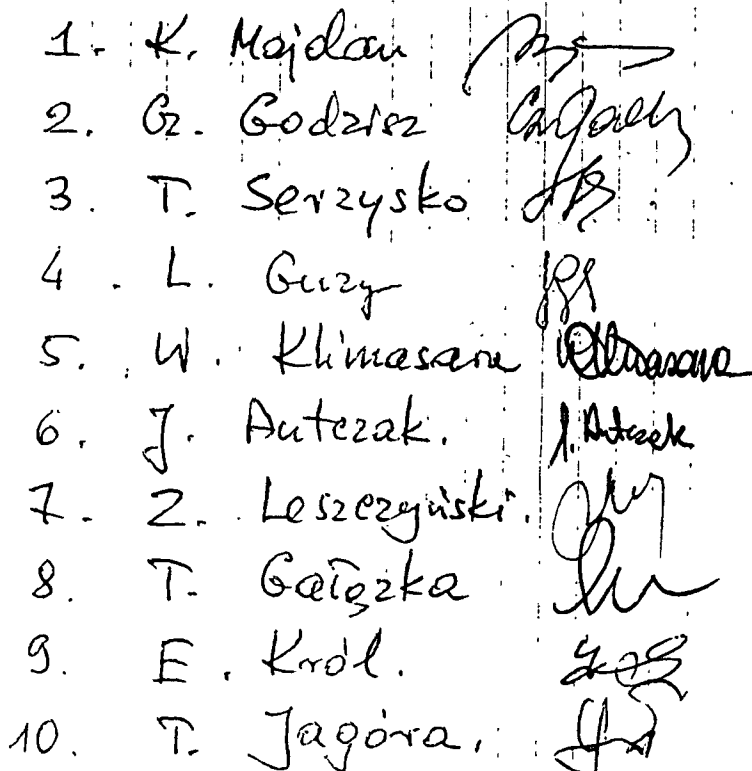 1. K. Majdan
2. Gz. Godzisz
3. T. Serzysko
4. L. Guzy
5. W. Klimasara W Klimasara
6. J. Antczak. J. Antczak
7. Z. Leszczyński.
8. T. Gałązka
9. E. Król.
10. T. Jagóra.